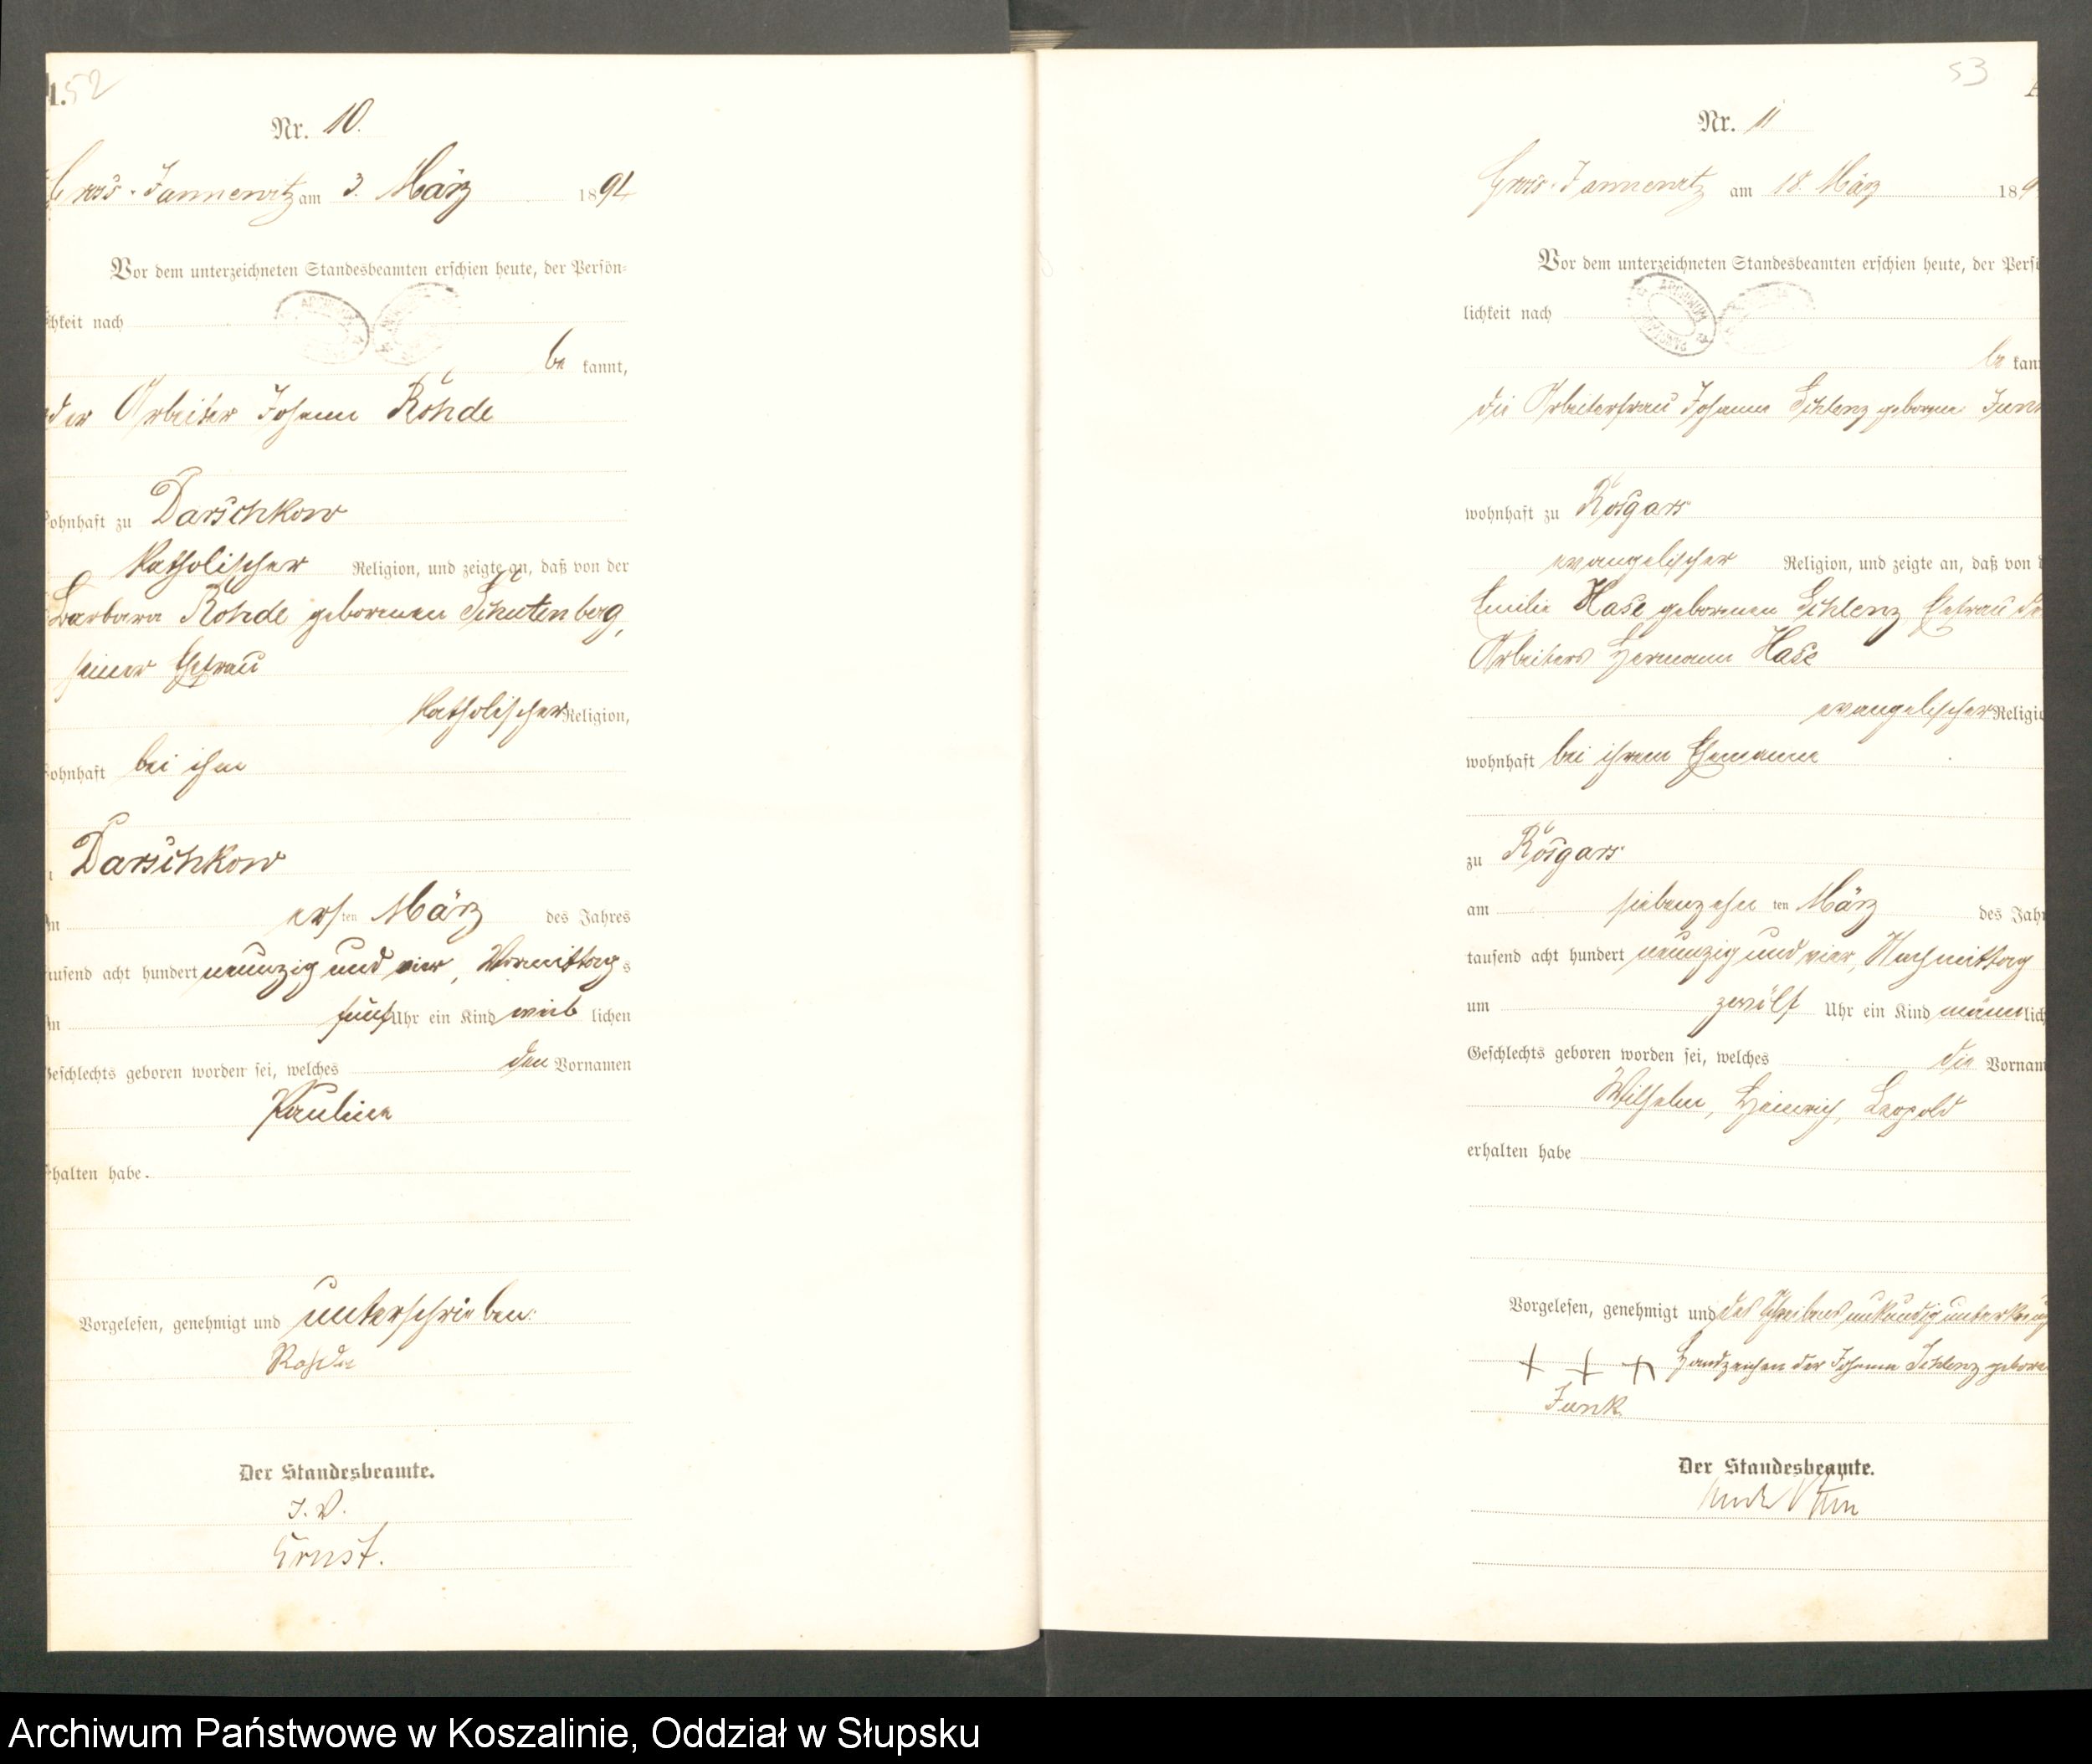 1.
52
Nr. 10.
Gross-Jannewitz am 3. März 1894
Vor dem unterzeichneten Standesbeamten erschien heute, der Persön-
chkeit nach
be kannt,
der Arbeiter Johann Rohde
ohnhaft zu Darschkow
katholischer Religion, und zeigte an, daß von der
Barbara Rohde geborenen Schutenberg,
seiner Ehefrau
katholischer Religion,
ohnhaft bei ihm
Darschkow
ersten März des Jahres
ausend acht hundert neunzig und vier, Vormittags
fünf Uhr ein Kind weiblichen
Geschlechts geboren worden sei, welches den Vornamen
Pauline
halten habe.
Vorgelesen, genehmigt und unterschrieben:
Rohde
Der Standesbeamte.
J. V.
Ernst.
53
Nr. 11
Gross-Jannewitz am 18. März 189
Vor dem unterzeichneten Standesbeamten erschien heute, der Persö
lichkeit nach
be kan
die Arbeiterfrau Johanna Schlenz geborene Jun
wohnhaft zu Rosgars
evangelischer Religion, und zeigte an, daß von d
Emilie Hase geborenen Schlenz, Ehefrau de
Arbeiters Hermann Hase
evangelischer Religi
wohnhaft bei ihrem Ehemann
zu Rosgars
am siebenzehnten März des Jah
tausend acht hundert neunzig und vier, Nachmittag
um zwölf Uhr ein Kind männlich
Geschlechts geboren worden sei, welches die Vornam
Wilhelm, Heinrich, Leopold
erhalten habe
Vorgelesen, genehmigt und des Schreibens unkundig unterkreuz
+ + + Handzeichen der Johanna Schlenz gebore
Junk
Der Standesbeamte.
Archiwum Państwowe w Koszalinie, Oddział w Słupsku